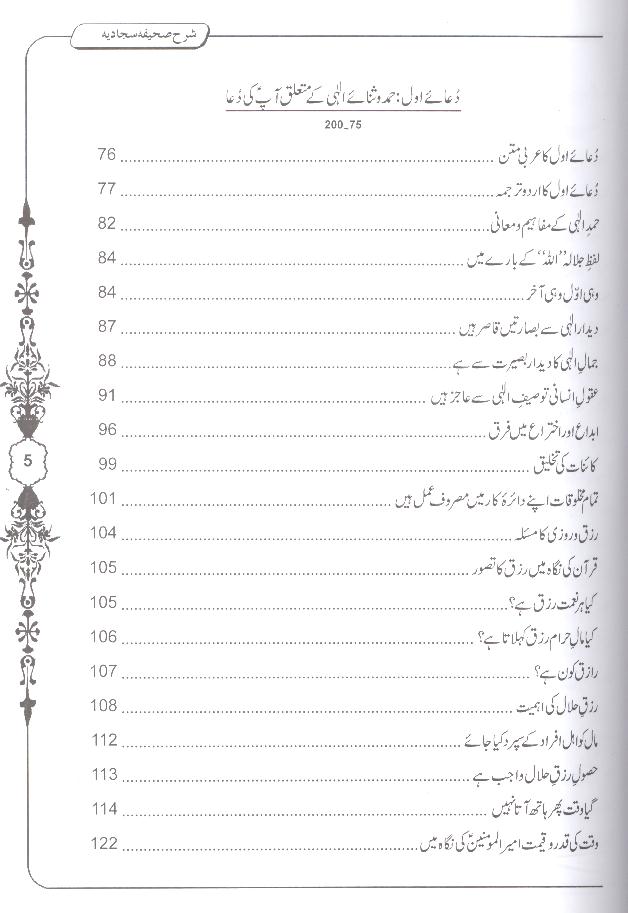 شرح صحیفہ سجادیہ
دُعائے اول: حمد و ثنائے الٰہی کے متعلق آپؑ کی دُعا
200_75
دُعائے اول کا عربی متن ........ 76
دُعائے اول کا اردو ترجمہ ........ 77
حمدِ الٰہی کے مفاہیم و معانی ........ 82
لفظِ جلالہ "اللہ" کے بارے میں ........ 84
وہی اوّل وہی آخر ........ 84
دیدارِ الٰہی سے بصارتیں قاصر ہیں ........ 87
جمالِ الٰہی کا دیدار بصیرت سے ہے ........ 88
عقولِ انسانی توصیفِ الٰہی سے عاجز ہیں ........ 91
ابداع اور اختراع میں فرق ........ 96
کائنات کی تخلیق ........ 99
تمام مخلوقات اپنے دائرۂ کار میں مصروفِ عمل ہیں ........ 101
رزق و روزی کا مسئلہ ........ 104
قرآن کی نگاہ میں رزق کا تصور ........ 105
کیا ہر نعمت رزق ہے؟ ........ 105
کیا مالِ حرام رزق کہلاتا ہے؟ ........ 106
رازق کون ہے؟ ........ 107
رزقِ حلال کی اہمیت ........ 108
مال کو اہل افراد کے سپرد کیا جائے ........ 112
حصولِ رزقِ حلال واجب ہے ........ 113
گیا وقت پھر ہاتھ آتا نہیں ........ 114
وقت کی قدر و قیمت امیر المومنینؑ کی نگاہ میں ........ 122
5